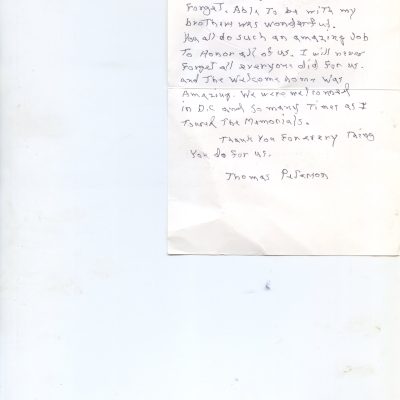 Forget. Able To be with my
brothers was wonderful.
You all do such an amazing Job
To Honor all of us. I will never
Forget all everyone did For us.
and The Welcome home was
Amazing. We were welcomed
in D.C and so many Times as I
Toured The Memorials.
Thank You For every Thing
You do For us.
Thomas Peterson